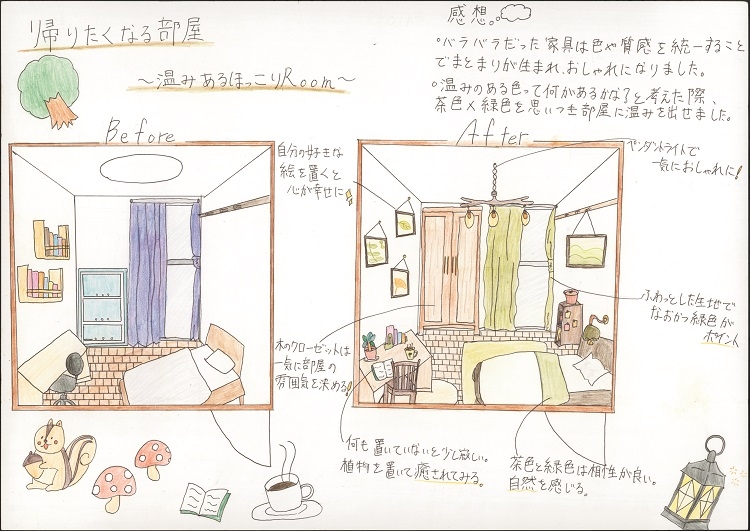 帰りたくなる部屋
～温みあるほっこりRoom～
感想。
°バラバラだった家具は色や質感を統一すること
でまとまりが生まれ、おしゃれになりました。
°温みのある色って何があるかな？と考えた際、
茶色×緑色を思いつき部屋に温みを出せました。
Before
After
自分の好きな
絵を置くと
心が幸せに
ペンダントライトで
一気におしゃれに!
ふわっとした生地で
なおかつ緑色が
ポイント
木のクローゼットは
一気に部屋の
雰囲気を決める!
何も置いていないと少し寂しい。
植物を置いて癒されてみる。
茶色と緑色は相性が良い。
自然を感じる。